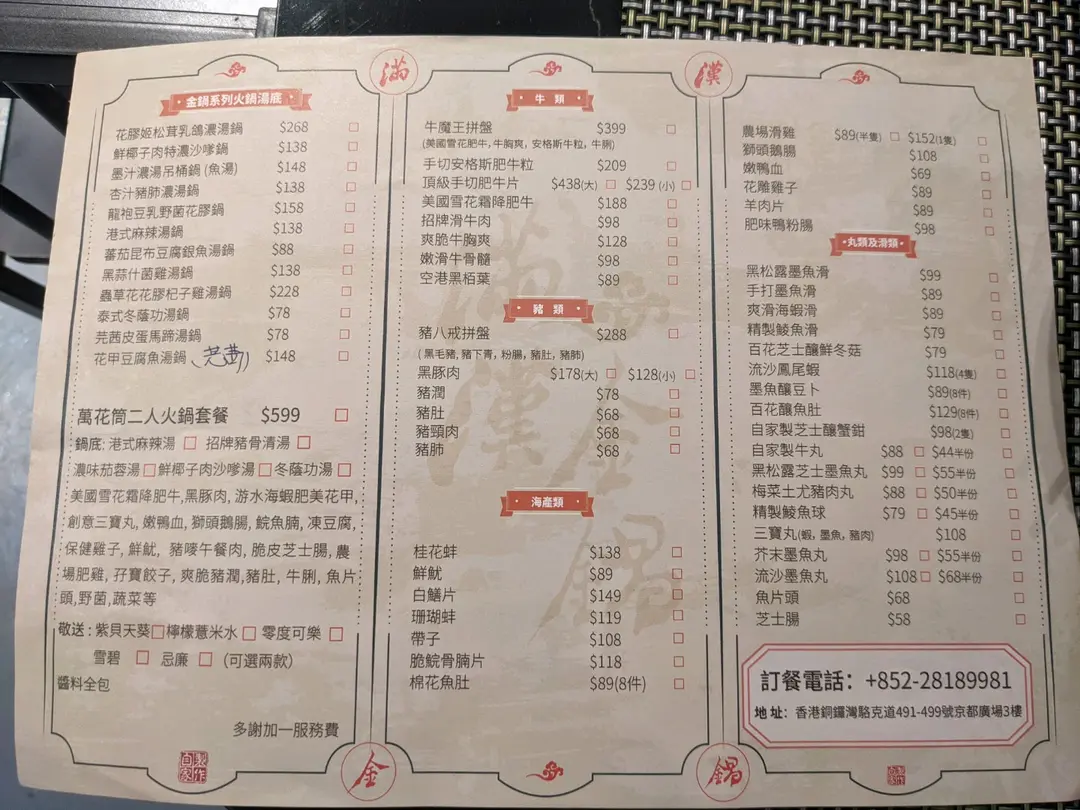 滿
漢
金鍋系列火鍋湯底
花膠姬松茸乳鴿濃湯鍋 $268
鮮椰子肉特濃沙嗲鍋 $138
墨汁濃湯吊桶鍋 (魚湯) $148
杏汁豬肺濃湯鍋 $138
龍袍豆乳野菌花膠鍋 $158
港式麻辣湯鍋 $138
蕃茄昆布豆腐銀魚湯鍋 $88
黑蒜什菌雞湯鍋 $138
蟲草花花膠杞子雞湯鍋 $228
泰式冬蔭功湯鍋 $78
芫茜皮蛋馬蹄湯鍋 $78
花甲豆腐魚湯鍋 $148
萬花筒二人火鍋套餐 $599
鍋底: 港式麻辣湯 招牌豬骨清湯
濃味茄蓉湯 鮮椰子肉沙嗲湯 冬蔭功湯
美國雪花霜降肥牛,黑豚肉, 游水海蝦肥美花甲,
創意三寶丸, 嫩鴨血, 獅頭鵝腸, 鯇魚腩, 凍豆腐,
保健雞子, 鮮魷, 豬嘜午餐肉, 脆皮芝士腸, 農
場肥雞, 孖寶餃子, 爽脆豬潤, 豬肚, 牛脷, 魚片
頭,野菌,蔬菜等
敬送 : 紫貝天葵 檸檬薏米水 零度可樂
雪碧 忌廉 (可選兩款)
醬料全包
多謝加一服務費
牛 類
牛魔王拼盤 $399
(美國雪花肥牛, 牛胸爽, 安格斯牛粒, 牛脷)
手切安格斯肥牛粒 $209
頂級手切肥牛片 $438(大) $239 (小)
美國雪花霜降肥牛 $188
招牌滑牛肉 $98
爽脆牛胸爽 $128
嫩滑牛骨髓 $98
空港黑栢葉 $89
豬 類
豬八戒拼盤 $288
( 黑毛豬, 豬下青, 粉腸, 豬肚, 豬肺)
黑豚肉 $178(大) $128(小)
豬潤 $78
豬肚 $68
豬頸肉 $68
豬肺 $68
海產類
桂花蚌 $138
鮮魷 $89
白鱔片 $149
珊瑚蚌 $119
帶子 $108
脆鯇骨腩片 $118
棉花魚肚 $89(8件)
農場滑雞 $89(半隻) $152(1隻)
獅頭鵝腸 $108
嫩鴨血 $69
花雕雞子 $89
羊肉片 $89
肥味鴨粉腸 $98
丸類及滑類
黑松露墨魚滑 $99
手打墨魚滑 $89
爽滑海蝦滑 $89
精製鯪魚滑 $79
百花芝士釀鮮冬菇 $79
流沙鳳尾蝦 $118(4隻)
墨魚釀豆卜 $89(8件)
百花釀魚肚 $129(8件)
自家製芝士釀蟹鉗 $98(2隻)
自家製牛丸 $88 $44半份
黑松露芝士墨魚丸 $99 $55半份
梅菜土尤豬肉丸 $88 $50半份
精製鯪魚球 $79 $45半份
三寶丸(蝦, 墨魚, 豬肉) $108
芥末墨魚丸 $98 $55半份
流沙墨魚丸 $108 $68半份
魚片頭 $68
芝士腸 $58
訂餐電話: +852-28189981
地 址: 香港銅鑼灣駱克道491-499號京都廣場3樓
金
鍋